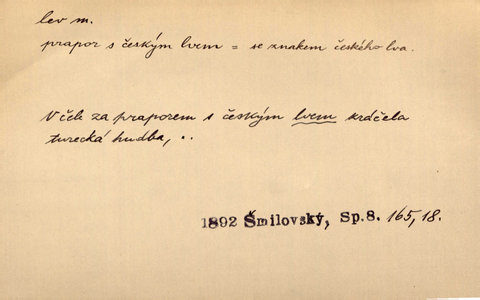 lev m.
prapor s českým lvem = se znakem českého lva.
V čele za praporem s českým lvem kráčela
turecká hudba, ..
1892 Šmilovský, Sp.8. 165,18.